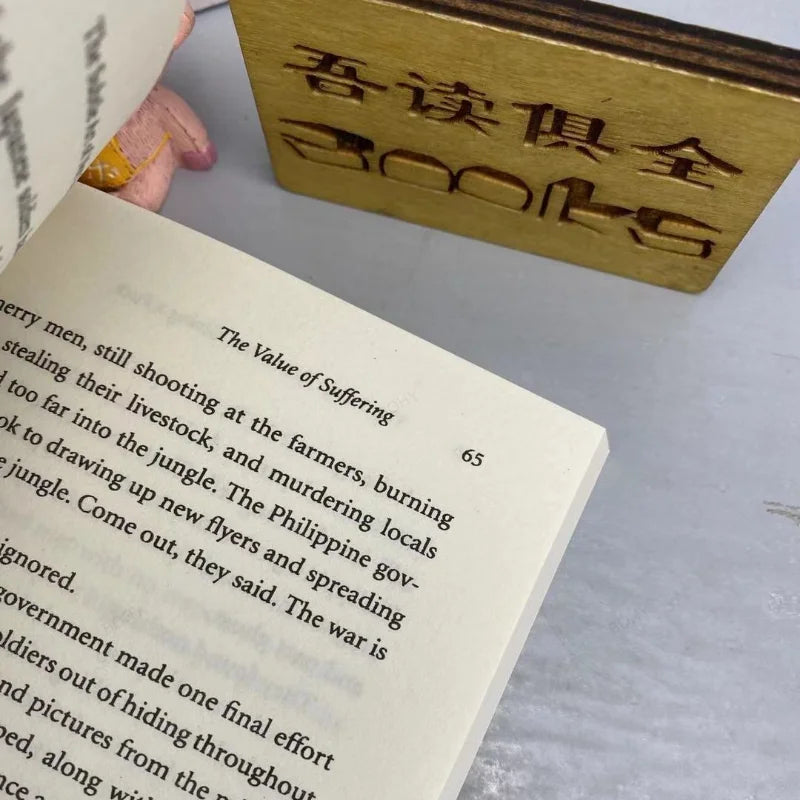 吾读俱全
BOOKS
The
Japanese
The Value of Suffering
65
merry men, still shooting at the farmers, burning
stealing their livestock, and murdering locals
too far into the jungle. The Philippine gov-
to drawing up new flyers and spreading
jungle. Come out, they said. The war is
ignored.
government made one final effort
soldiers out of hiding throughout
and pictures from the
along with